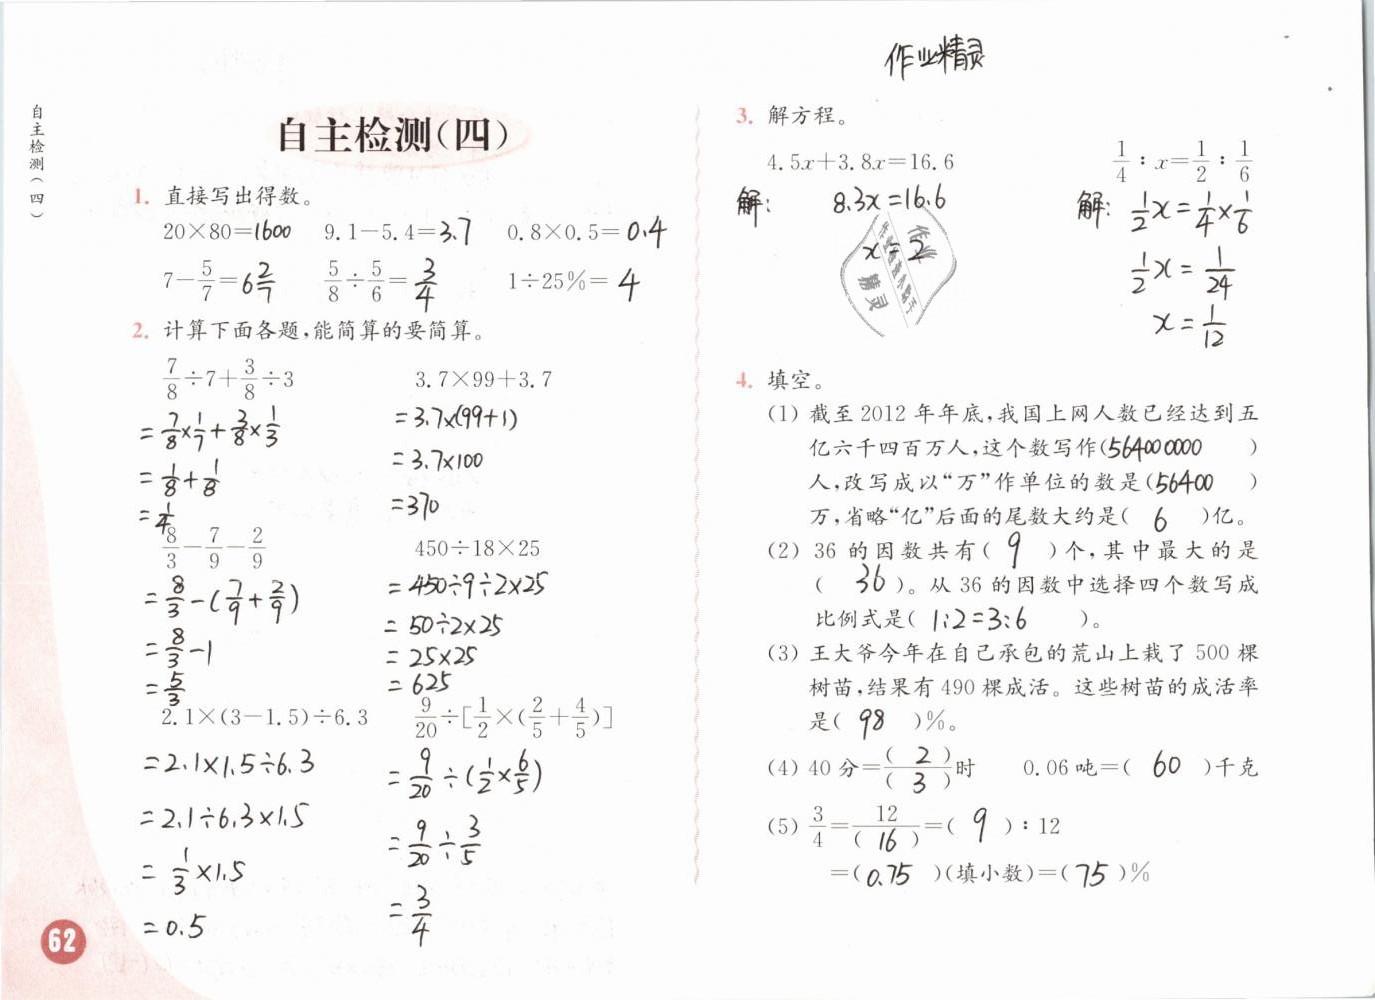 作业精灵
自主检测(四)
自主检测(四)
1. 直接写出得数。
20×80=1600 9.1−5.4=3.7 0.8×0.5=0.4
7−5/7=6 2/7 5/8÷5/6=3/4 1÷25%=4
2. 计算下面各题,能简算的要简算。
7/8÷7+3/8÷3 3.7×99+3.7
=7/8×1/7+3/8×1/3 =3.7×(99+1)
=1/8+1/8 =3.7×100
=1/4 =370
8/3−7/9−2/9 450÷18×25
=8/3−(7/9+2/9) =450÷9÷2×25
=8/3−1 =50÷2×25
=5/3 =25×25
=625
2.1×(3−1.5)÷6.3 9/20÷[1/2×(2/5+4/5)]
=2.1×1.5÷6.3 =9/20÷(1/2×6/5)
=2.1÷6.3×1.5 =9/20÷3/5
=1/3×1.5 =3/4
=0.5
62
3. 解方程。
4.5x+3.8x=16.6 1/4:x=1/2:1/6
解: 8.3x=16.6 解: 1/2x=1/4×1/6
x=2 1/2x=1/24
x=1/12
作业
精灵
4. 填空。
(1) 截至2012年年底,我国上网人数已经达到五
亿六千四百万人,这个数写作(564000000)
人,改写成以“万”作单位的数是(56400)
万,省略“亿”后面的尾数大约是( 6 )亿。
(2) 36的因数共有( 9 )个,其中最大的是
( 36 )。从36的因数中选择四个数写成
比例式是( 1:2=3:6 )。
(3) 王大爷今年在自己承包的荒山上栽了500棵
树苗,结果有490棵成活。这些树苗的成活率
是( 98 )%。
(4) 40分=(2)/(3)时 0.06吨=( 60 )千克
(5) 3/4=12/(16)=( 9 ):12
=(0.75)(填小数)=(75)%